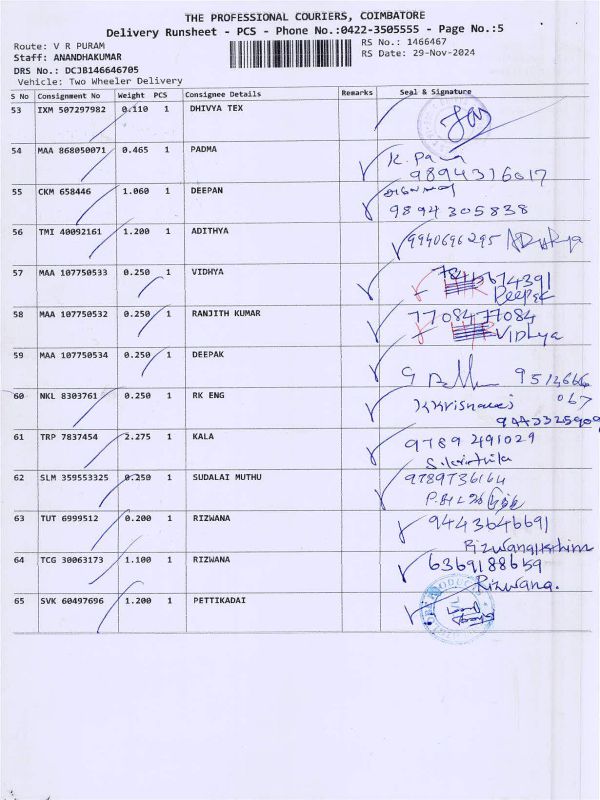 THE PROFESSIONAL COURIERS, COIMBATORE
Delivery Runsheet - PCS - Phone No.:0422-3505555 - Page No.:5
Route: V R PURAM
RS No.: 1466467
Staff: ANANDHAKUMAR
RS Date: 29-Nov-2024
DRS No.: DCJB146646705
Vehicle: Two Wheeler Delivery
S No Consignment No Weight PCS Consignee Details Remarks Seal & Signature
53 IXM 507297982 0.110 1 DHIVYA TEX
54 MAA 868050071 0.465 1 PADMA
9894316017
55 CKM 658446 1.060 1 DEEPAN
9894305838
56 TMI 40092161 1.200 1 ADITHYA
9940696295
57 MAA 107750533 0.250 1 VIDHYA
Deepak
58 MAA 107750532 0.250 1 RANJITH KUMAR
7708477084
Vidhya
59 MAA 107750534 0.250 1 DEEPAK
60 NKL 8303761 0.250 1 RK ENG
61 TRP 7837454 2.275 1 KALA
9789491029
62 SLM 359553325 0.250 1 SUDALAI MUTHU
9789736164
63 TUT 6999512 0.200 1 RIZWANA
9443646691
64 TCG 30063173 1.100 1 RIZWANA
6369188659
Rizwana.
65 SVK 60497696 1.200 1 PETTIKADAI